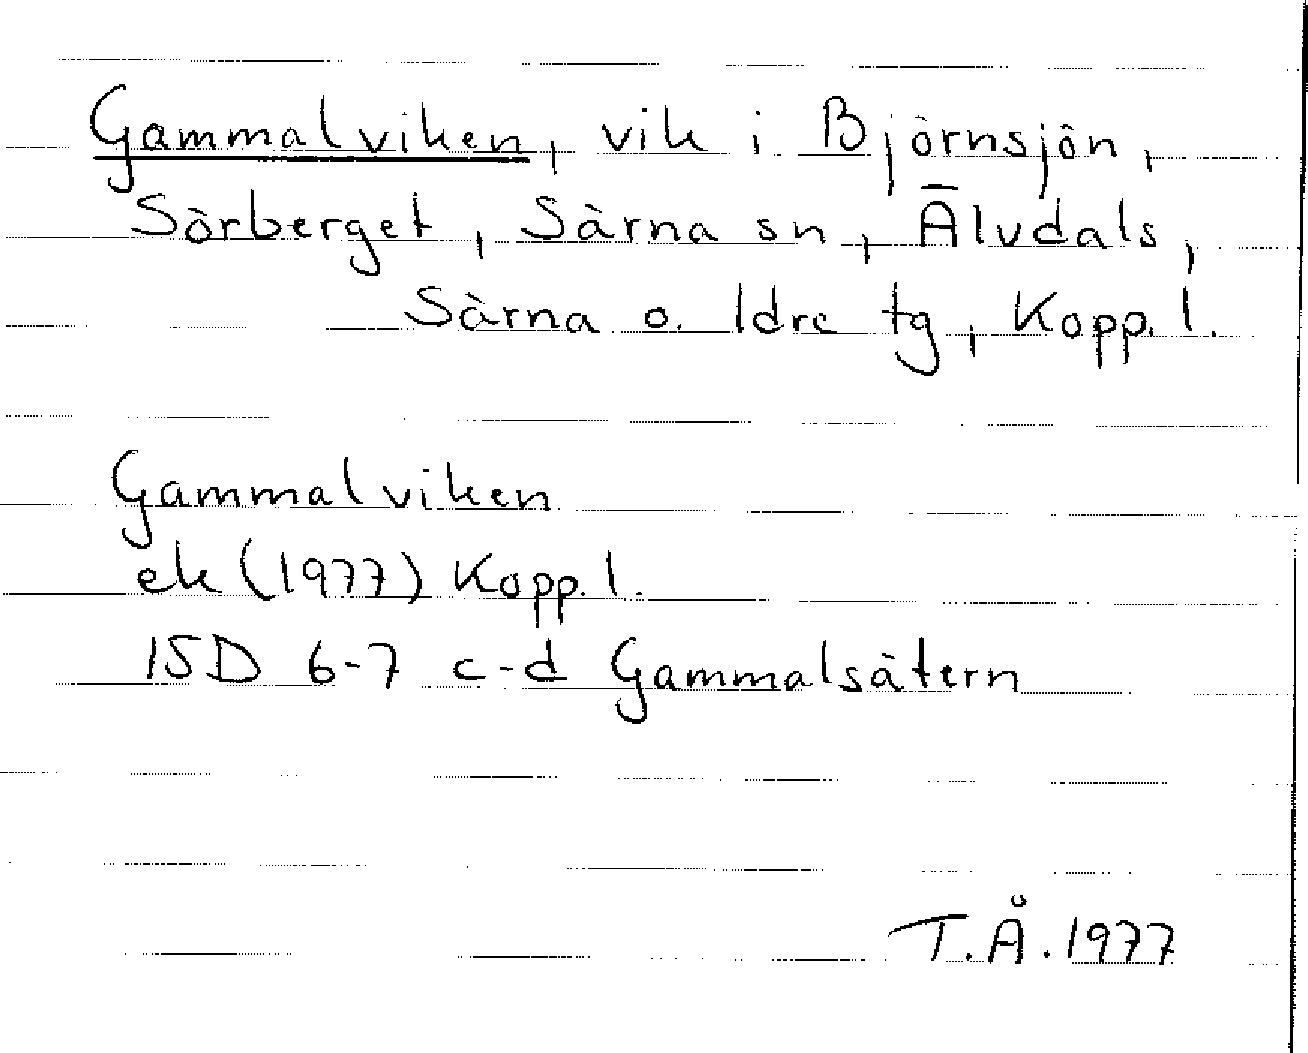 Gammalviken, vik i Björnsjön,
Sörberget, Särna sn, Älvdals,
Särna o. Idre tg, Kopp. l.
Gammalviken
ek (1977) Kopp. l.
15D 6-7 c-d Gammalsätern
T.Å. 1977